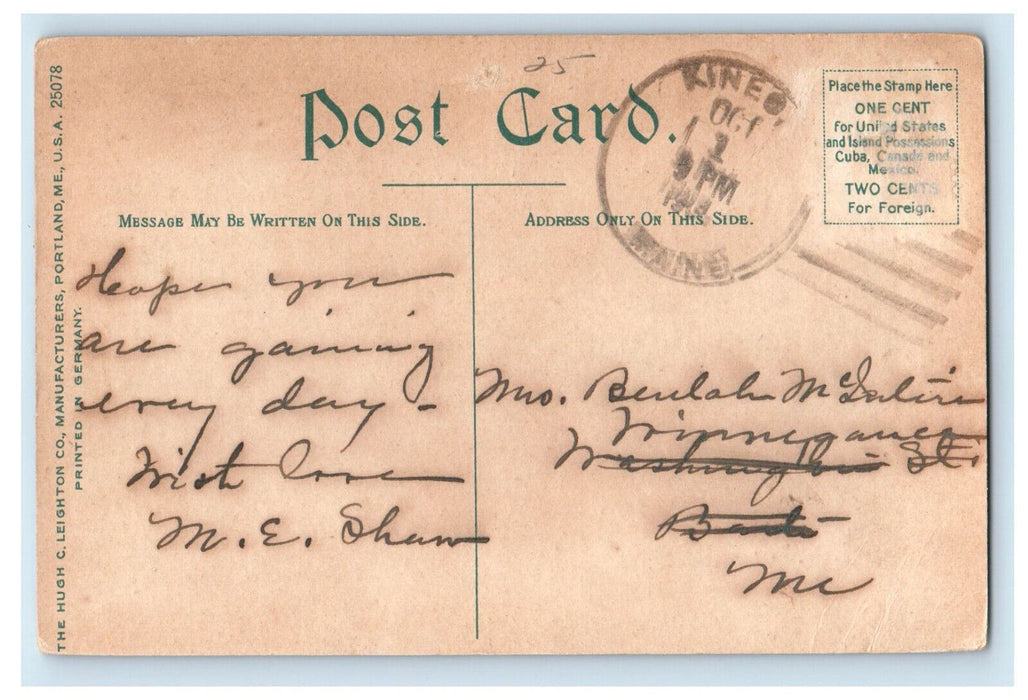 25
Post Card.
KINEO,
OCT
1
9 PM
MAINE
Place the Stamp Here
ONE CENT
for United States
and Island Possessions
Cuba, Canada and
Mexico.
TWO CENTS
For Foreign.
MESSAGE MAY BE WRITTEN ON THIS SIDE.
ADDRESS ONLY ON THIS SIDE.
THE HUGH C. LEIGHTON CO., MANUFACTURERS, PORTLAND, ME., U.S.A. 25078
PRINTED IN GERMANY.
Hope you
are gaining
every day -
With love
M. E. Shaw
Mrs. Beulah McIntire
Winnegance
Washington St.
Bath
Me